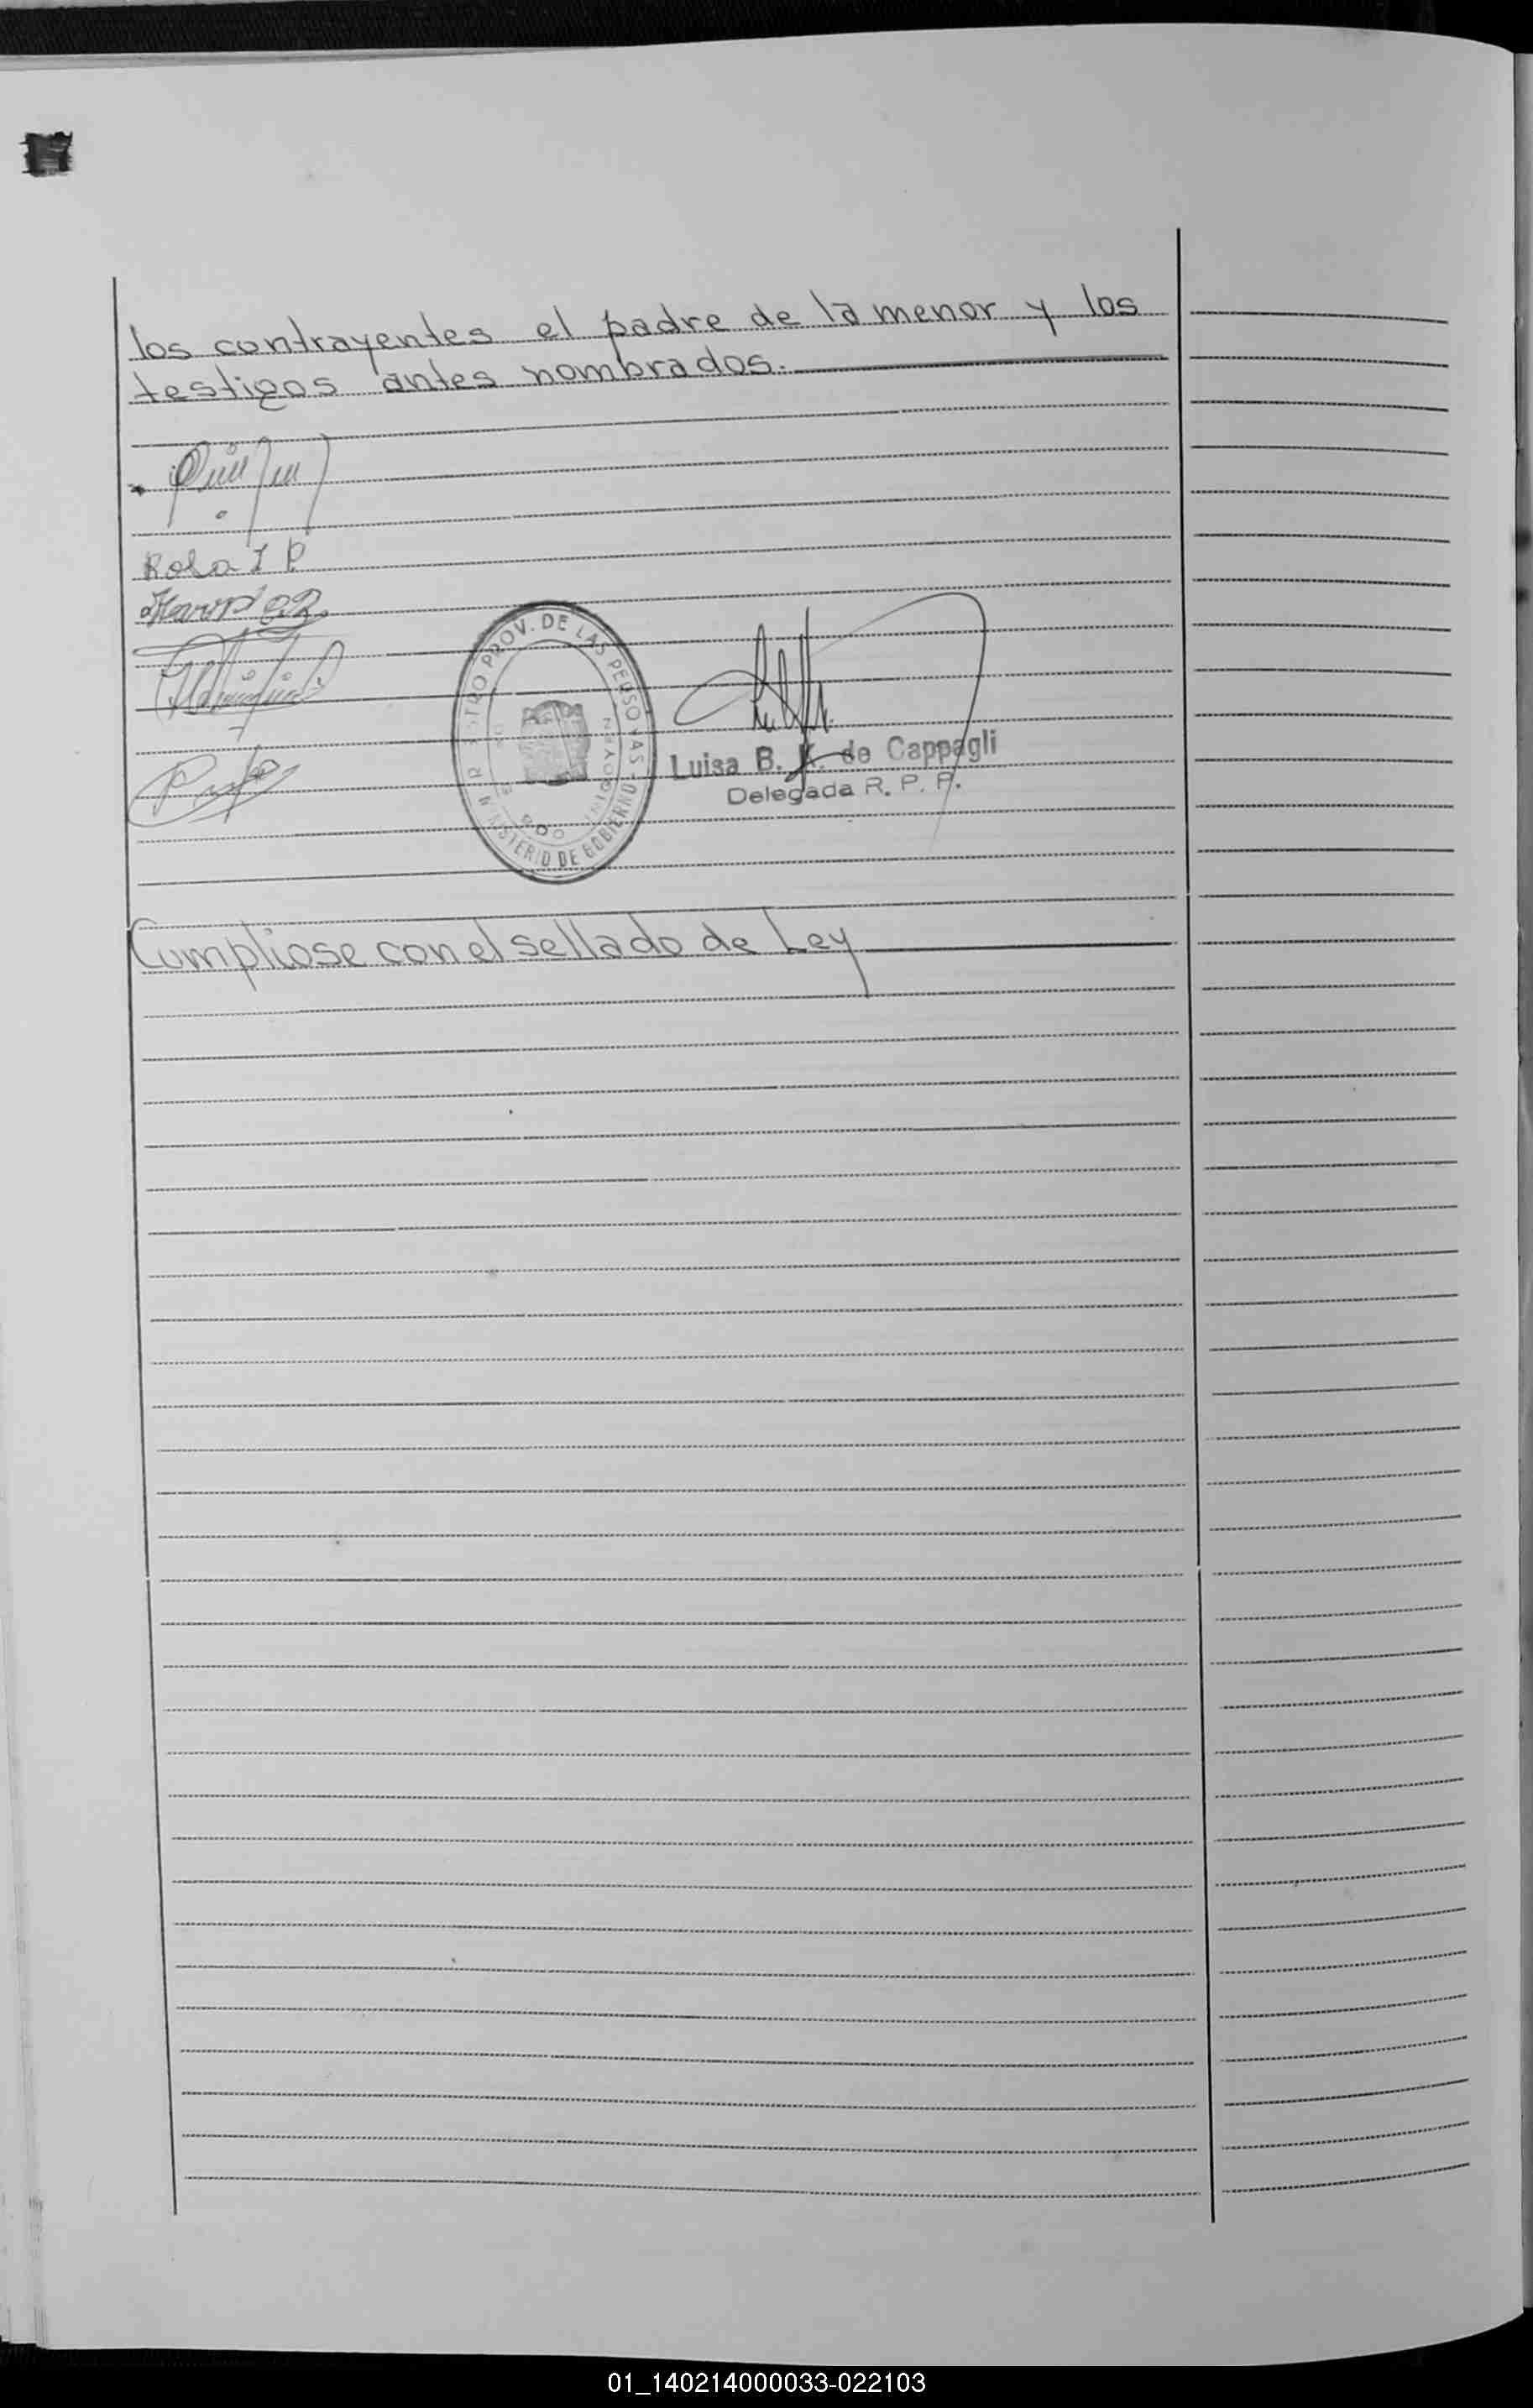 los contrayentes el padre de la menor y los
testigos antes nombrados.
Rosa I P
PROV. DE LAS PERSONAS - MINISTERIO DE GOBIERNO
Luisa B. K. de Cappagli
Delegada R. P. P.
Cumpliose con el sellado de Ley
01_140214000033-022103